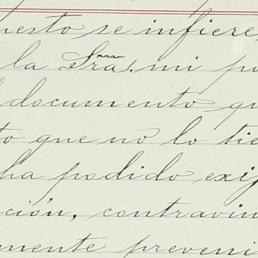 uesto se infiere
la Sra. mi p
documento qu
to que no lo tie
ha podido exi
ción, contravin
mente preveni